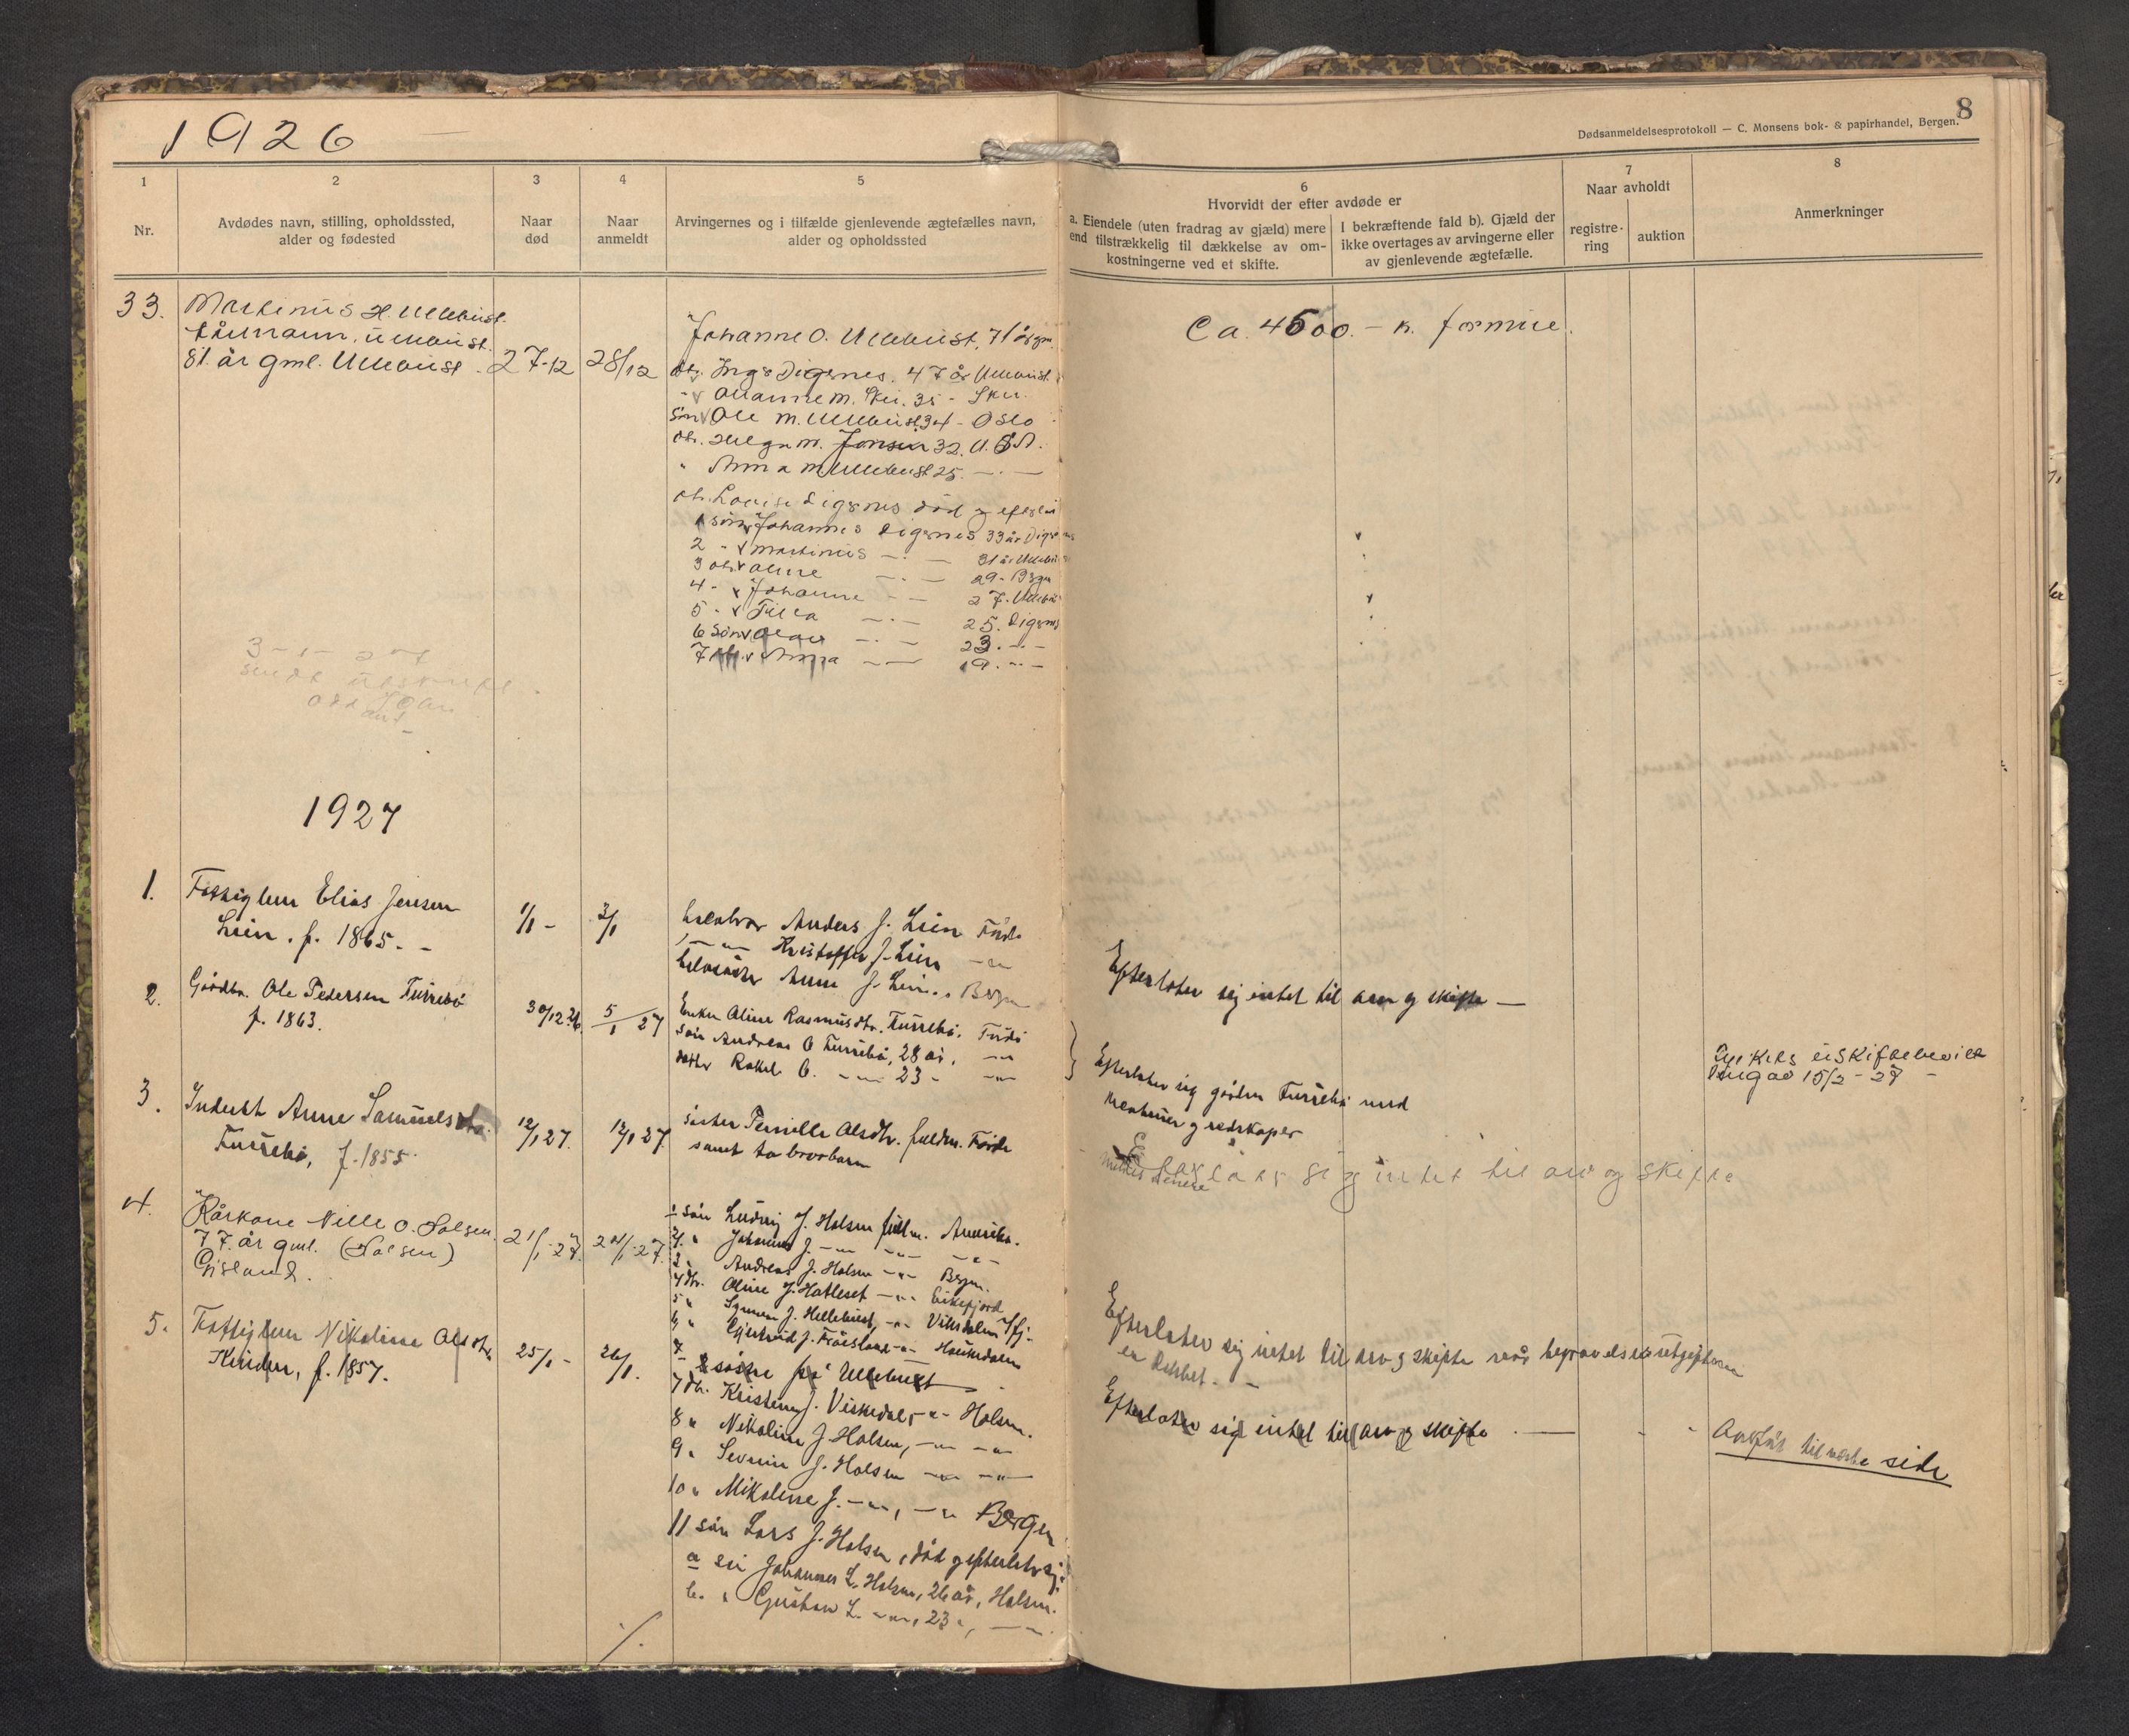 1926
8
Dødsanmeldelsesprotokoll — C. Monsens bok- & papirhandel, Bergen.
1
2
3
4
5
6
7
8
Nr.
Avdødes navn, stilling, opholdssted,
alder og fødested
Naar
død
Naar
anmeldt
Arvingernes og i tilfælde gjenlevende ægtefælles navn,
alder og opholdssted
Hvorvidt der efter avdøde er
a. Eiendele (uten fradrag av gjæld) mere
end tilstrækkelig til dækkelse av om-
kostningerne ved et skifte.
I bekræftende fald b). Gjæld der
ikke overtages av arvingerne eller
av gjenlevende ægtefælle.
Naar avholdt
registre-
ring
auktion
Anmerkninger
33.
Martinus H. Ullebust.
kårmann, Ullebust.
81. år gml. Ullebust.
27-12
28/12
Johanne O. Ullebust, 71 år gm.
dtr. Inga Digernes. 47 år Ullebust.
M. 35 -
Søn Ole M. Ullebust 34 - Oslo
dtr. Helga M. Jonsen 32. U.S.A.
" Anna M Ullebust 25. — . —
dtr. Louise Digernes død og efterlot
1 søn Johannes Digernes 33 år Digernes
2 - Martinus — . — 31 år Ullebust
3 dtr. Oline — . — 29 - Brgn
4 - Johanne — — 27. Ullebust
5 - — . — 25. Digernes
6 Søn Olav — . — 23. - . -
7 dtr. Anna — — 19. - . -
Ca. 4500. - kr. formue.
3-1-27
sendt utskrift
1927
1.
Fattiglem Elias Jensen
Lien. f. 1865. -
1/1 -
3/1
halvbror Anders J. Lien Førde
— " — Kristoffer J. Lien — " —
halvsøster Anne J. Lien. Brgn
Efterlater sig intet til arv og skifte —
2.
Gårdbr. Ole Pedersen Furrebø
f. 1863.
30/12.26
5/1 27
Enke Aline Rasmusdtr. Furrebø. Førde
søn Andreas O Furrebø, 28 år. — " —
datter Rakel O. — " — 23 - — " —
Efterlater sig gården Furrebø med
kreaturer og redskaper
uskiftebevilling
15/2 - 27 -
3.
Inderst Anne Samuelsdtr.
Furrebø, f. 1855
12/1 27.
12/1 27
søster Pernille Olsdtr. fuldm. Førde
samt to brorbarn
meldes senere
Efterlater sig intet til arv og skifte
4.
Kårkone Nille O. Holsen.
77. år gml. (Holsen)
21/1-27.
24/1-27.
1 søn Ludvig J. Holsen fuldm. Amerika.
2. " Johannes J. — " — — " — — " —
3 " Andreas J. Holsen — " — Brgn.
4 dtr. Oline J. Hatleset — " — Eikefjord
5 " J. Hellebust, — " — Viksdalen
6 " Gjertrud J. Frøisland — " — Haukedalen
7 dtr. Kristine J. Viskedal, — " — Holsen.
8 " Nikoline J. Holsen, — " — — " —
9 " Severine J. Holsen — " — — " —
10 " Mikaline J. — " —, — " — Bergen
11 søn Lars J. Holsen, død og efterlater sig:
a søn Johannes L. Holsen, 26 år, Holsen.
b. " Gustav L. — " —, 23 ", — " —
Efterlater sig intet til arv og skifte når begravelsesutgiftene
er dekket. -
5.
Fattiglem Nikoline Olsdtr.
Kinden, f. 1857.
25/1 -
26/1.
2 søstre på Ullebust
Efterlater sig intet til arv og skifte. —
Anført til næste side
./.